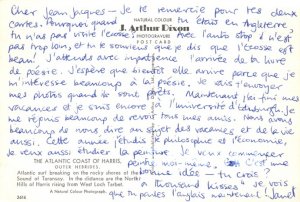 Cher Jean Jacques - Je te remercie pour tes deux
cartes. Pourquoi quand tu étais en Angleterre
NATURAL COLOUR
J. Arthur Dixon
PHOTOGRAPHIC
POSTCARD
tu n'as pas visité l'écosse avec l'auto stop c'est
pas trop loin, et tu te souviens que je dis que l'écosse est
beau! J'attends avec impatience l'arrivée de ta livre
de poésie. J'espère que bientôt elle arrive parce que je
m'intéresse beaucoup à la poésie. Je vais t'envoyer
mes photos quand je sont prêts. Maintenant j'ai fini mes
vacances et je suis encore à l'université d'Edinburgh.
me réjouis beaucoup de revoir tous mes amis. Nous avons
beaucoup de nous dire au sujet des vacances et de la vie
aussi. Cette année j'étudie la philosophie et l'économie,
Je veux aussi étudier la peinture. Je veux commencer
peindre moi-même. C'est une
bonne idée - tu crois?
"a thousand kisses" je vois
que tu parles l'anglais maintenant! Janet
THE ATLANTIC COAST OF HARRIS,
OUTER HEBRIDES.
Atlantic surf breaking on the rocky shores of the
Sound of Taransay. In the distance are the North
Hills of Harris rising from West Loch Tarbet.
A Natural Colour Photograph.
2616